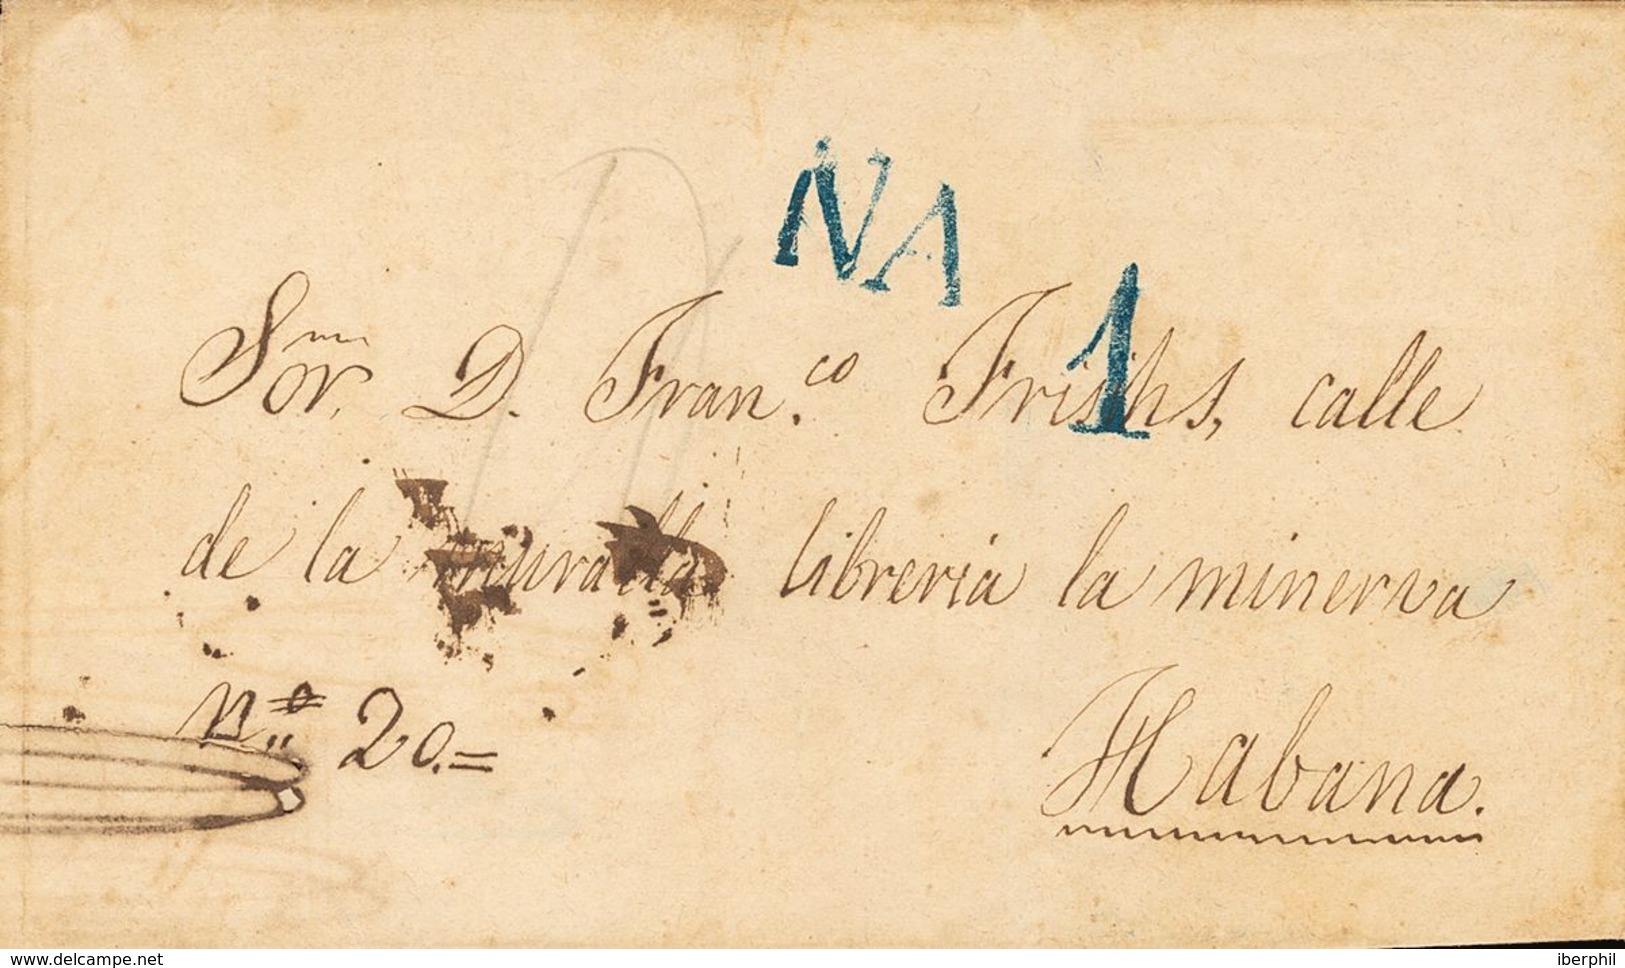 NA
1
Sor. D. Fran.co Frishs, calle
de la muralla libreria la minerva
N.o 20.=
Habana.
www.delcampe.net
iberphil